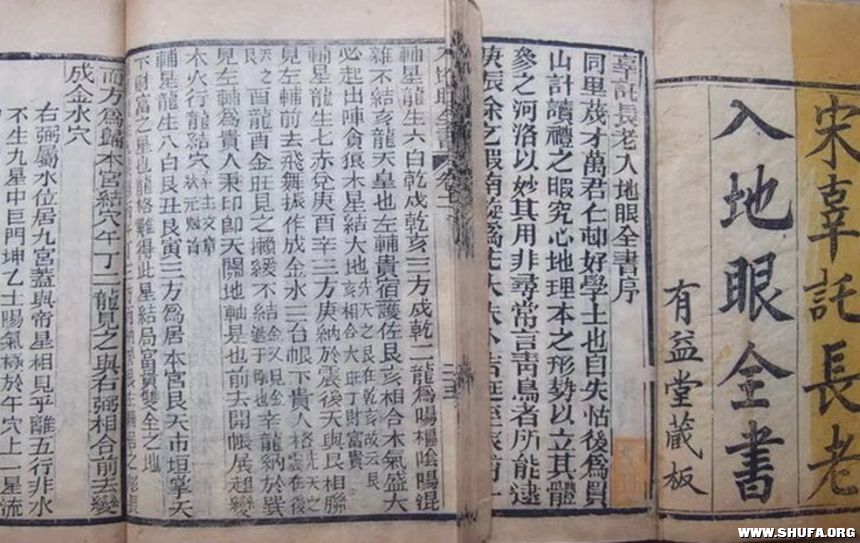 宋辜託長老
入地眼全書
有益堂藏板
辜託長老入地眼全書序
同里茂才萬君仁邨好學士也自失怙後為買
山計讀禮之暇究心地理本之形勢以立其體
參之河洛以妙其用非尋常言青烏者所能逮
庚辰余之暇南旋
入地眼全書 卷
輔星龍生六白乾戌乾亥三方戌乾二龍為陽樞陰陽混
雜不結亥龍天皇也左輔貴宿護佐艮亥相合木氣盛大
必起出陣貪狼木星結大地先天之艮在乾亥故云艮亥相合大旺丁財富貴
輔星龍生七赤兌庚酉辛三方庚納於震後天與艮相聯
見左輔前去飛舞振作成金水三台帳下貴人
酉龍酉金旺見之懶緩不結辛龍納於巽
見左輔為貴人秉印卽天關地軸是也前去開帳展翅
木火行龍結穴主文章狀元
輔星龍生八白艮丑艮寅三方為居本宮艮天市垣掌天
下財富之星也龍格難得此星結局富貴雙全之地
而方為歸本宮結穴午丁二龍見之與右弼相合前去變
成金水穴
右弼屬水位居九宮蓋與帝星相見乎離五行非水
不生九星中巨門坤乙土陽氣極於午穴上一星流
WWW.SHUFA.ORG